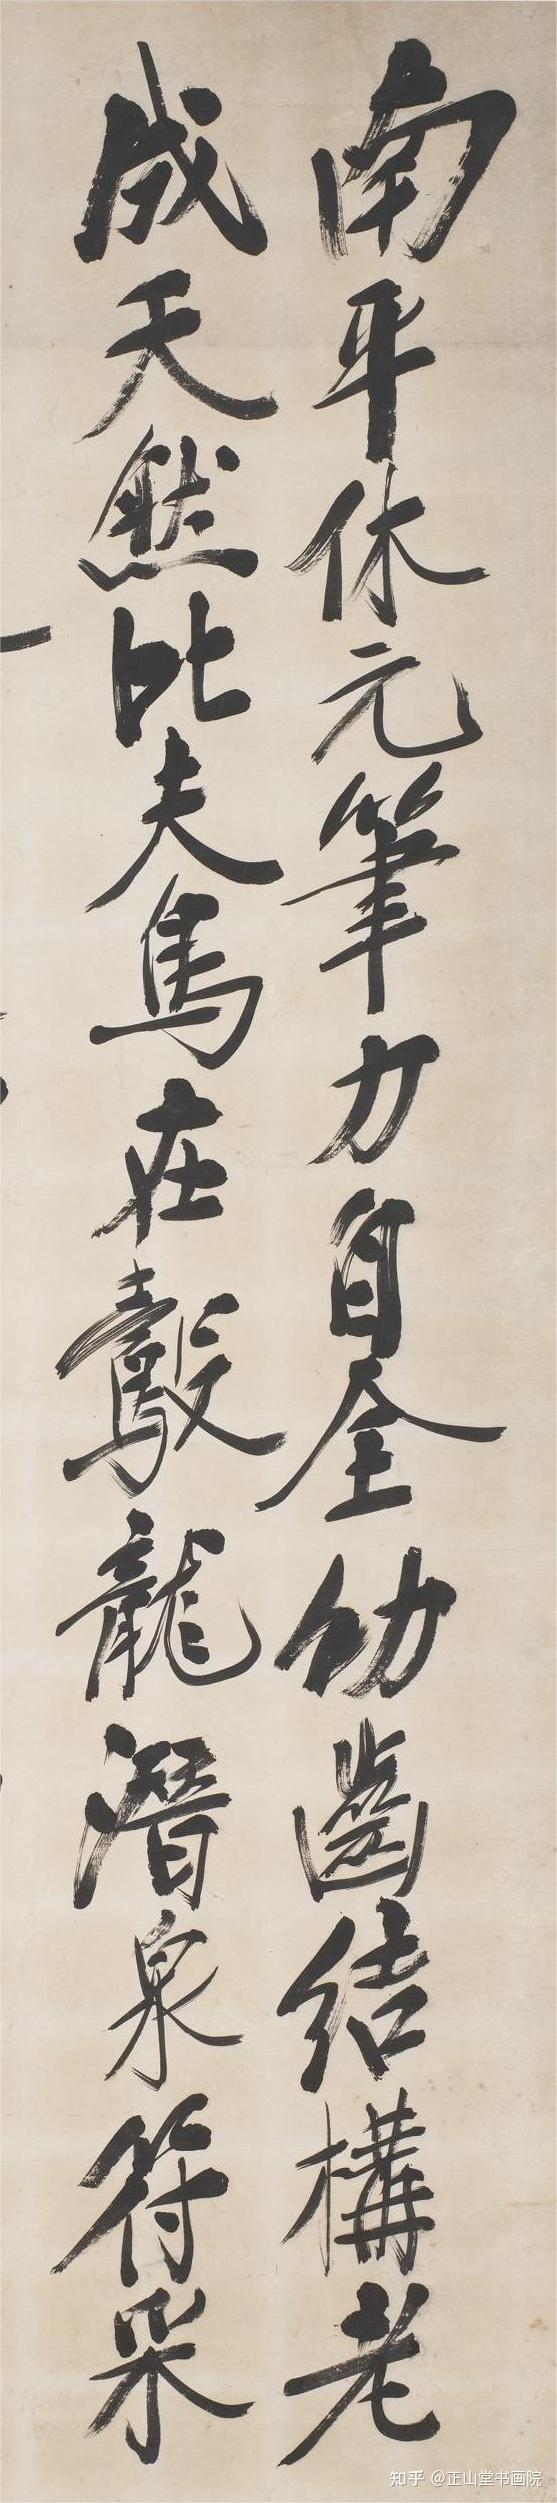 南平休元筆力自全幼齒結構老
成天然比夫馬在鷇龍潛泉符采
知乎 @正山堂书画院